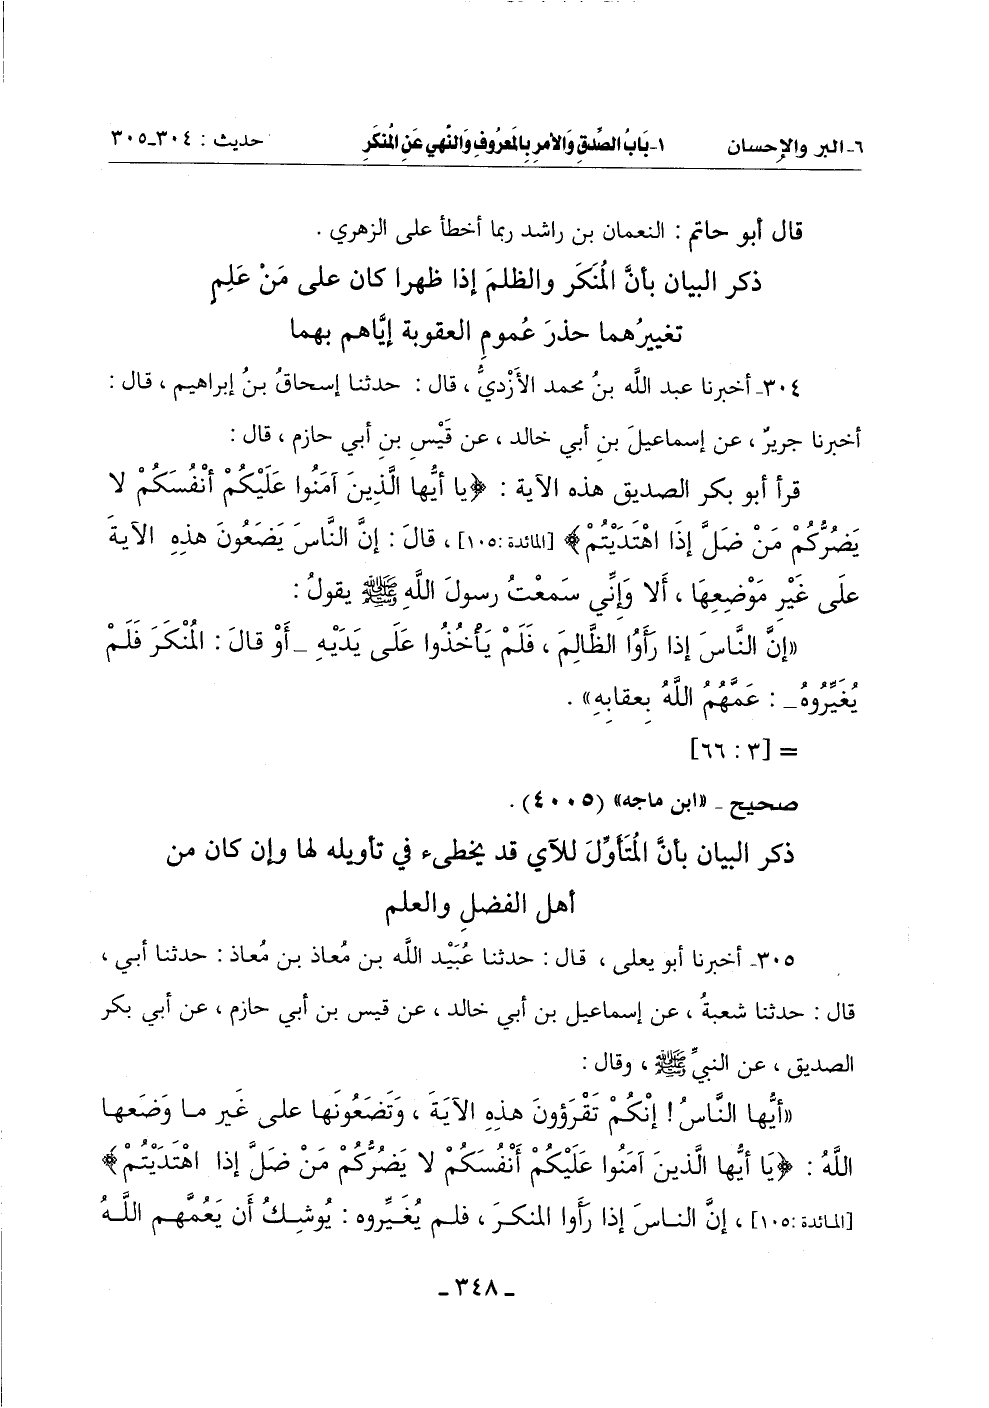 ٦- البر والإحسان ١- بَابُ الصِّدْقِ وَالأَمْرِ بِالمَعْرُوفِ وَالنَّهيِ عَنِ المُنكَرِ حديث : ٣٠٤-٣٠٥
قال أبو حاتم : النعمان بن راشد ربما أخطأ على الزهري .
ذكر البيان بأنَّ المُنكَرَ والظلمَ إذا ظهرا كان على مَنْ عَلِمِ
تغييرُهما حذرَ عُمومِ العقوبة إيَّاهم بهما
٣٠٤- أخبرنا عبد اللَّه بنُ محمد الأَزْديُّ ، قال : حدثنا إسحاقُ بنُ إبراهيم ، قال :
أخبرنا جريرٌ ، عن إسماعيلَ بنِ أبي خالد ، عن قَيْسِ بنِ أبي حازم ، قال :
قرأ أبو بكر الصديق هذه الآية : ﴿يا أيُّها الَّذِينَ آمَنُوا عَلَيْكُمْ أنْفُسَكُمْ لا
يَضرُّكُمْ مَنْ ضَلَّ إذَا اهْتَدَيْتُمْ﴾ [المائدة :١٠٥] ، قالَ : إنَّ النَّاسَ يَضَعُونَ هذِهِ الآيةَ
علَى غَيْرِ مَوْضِعِهَا ، أَلا وَإنِّي سَمعْتُ رسولَ اللَّهِ ﷺ يقولُ :
«إنَّ النَّاسَ إذا رَأَوُا الظَّالِمَ ، فَلَمْ يَأْخُذُوا عَلَى يَدَيْهِ _أَوْ قالَ : المُنْكَرَ فَلَمْ
يُغَيِّرُوهُ_ : عَمَّهُمُ اللَّهُ بِعقابِهِ» .
= [٣ : ٦٦]
صحيح _ «ابن ماجه» (٤٠٠٥) .
ذكر البيان بأنَّ المُتَأَوِّلَ للآي قد يخطىء في تأويله لها وإن كان من
أهل الفضلِ والعلم
٣٠٥- أخبرنا أبو يعلى ، قال : حدثنا عُبَيْد اللَّه بن مُعاذ بن مُعاذ : حدثنا أبي ،
قال : حدثنا شعبةُ ، عن إسماعيل بن أبي خالد ، عن قيس بن أبي حازم ، عن أبي بكر
الصديق ، عن النبيِّ ﷺ ، وقال :
«أيُّها النَّاسُ! إنْكُمْ تَقْرَؤونَ هذِهِ الآيَةَ ، وَتَضَعُونَها على غَيرِ ما وَضَعها
اللَّهُ : ﴿يَا أيُّها الَّذينَ آمَنُوا عَلَيْكُمْ أَنْفُسَكُمْ لا يَضرُّكُمْ مَنْ ضَلَّ إذا اهْتَدَيْتُمْ﴾
[المائدة :١٠٥] ، إنَّ الناسَ إذا رَأَوا المنكرَ ، فلم يُغَيِّروه : يُوشِكُ أن يَعُمَّهم اللَّهُ
- ٣٤٨ -